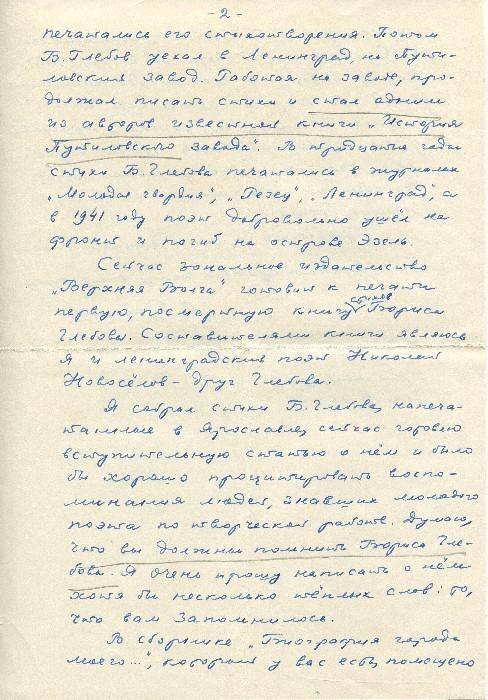 - 2 -
печатались его стихотворения. Потом
Б. Глебов уехал в Ленинград, на Пути-
ловский завод. Работая на заводе, про-
должал писать стихи и стал одним
из авторов известной книги „История
Путиловского завода". В тридцатые годы
стихи Б. Глебова печатались в журналах
„Молодая гвардия", „Резец", „Ленинград", а
в 1941 году поэт добровольно ушёл на
фронт и погиб на острове Эзель.
Сейчас зональное издательство
„Верхняя Волга" готовит к печати
первую, посмертную книгу стихов Бориса
Глебова. Составителями книги являюсь
я и ленинградский поэт Николай
Новосёлов - друг Глебова.
Я собрал стихи Б. Глебова, напеча-
танные в Ярославле, сейчас готовлю
вступительную статью о нём и было
бы хорошо процитировать воспо-
минания людей, знавших молодого
поэта по творческой работе. Думаю,
что вы должны помнить Бориса Гле-
бова. Я очень прошу написать о нём
хотя бы несколько тёплых слов: то,
что вам запомнилось.
В сборнике „Биография города
моего...", который у вас есть, помещено